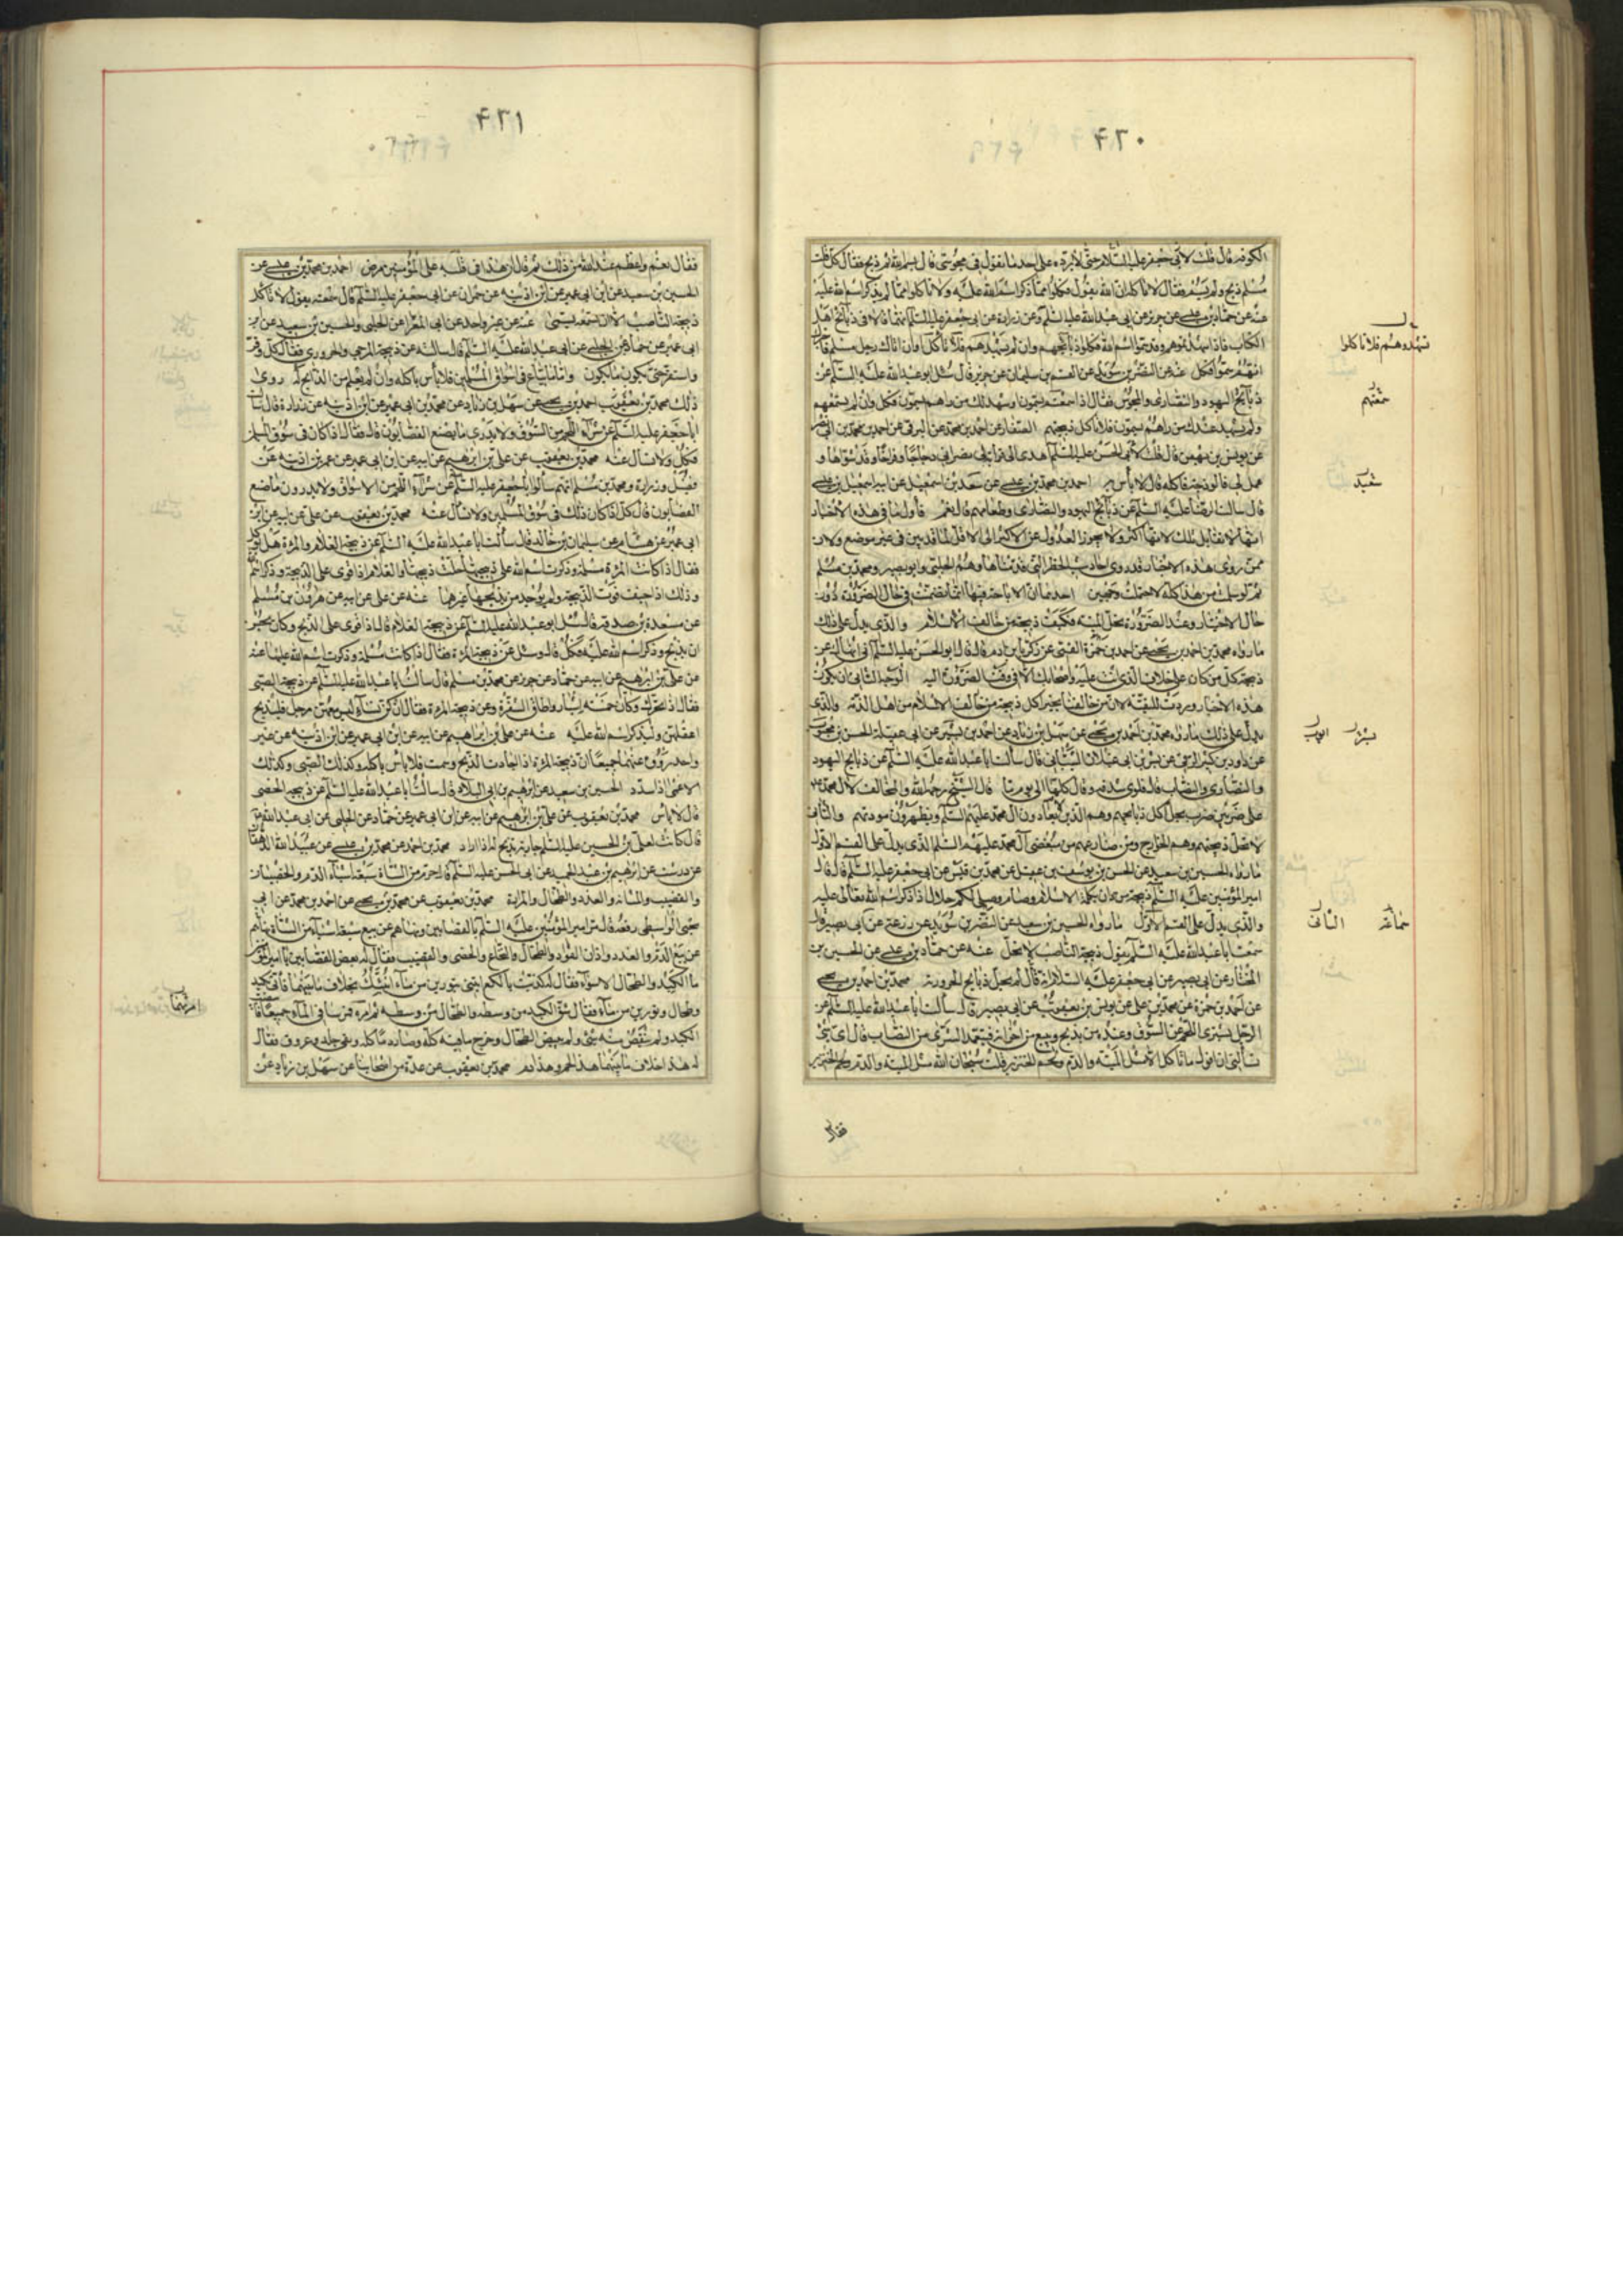 ۴۲۰
الكوفة قال قلت لابي جعفر عليه السلام حتى لا برده على احد ما تقول في مجوسي قال بسم الله ثم ذبح فقال كل قلت
مسلم ذبح ولم يسم فقال لا تاكله ان الله يقول فكلوا مما ذكر اسم الله عليه ولا تاكلوا مما لم يذكر اسم الله عليه
عنه عن حماد بن عيسى عن حريز عن ابي عبد الله عليه السلم وعن زرارة عن ابي جعفر عليه السلم انهما قالا في ذبائح اهل
الكتاب فاذا شهدتموهم وقد سموا اسم الله فكلوا ذبائحهم وان لم تشهدهم فلا تاكل وان اتاك رجل مسلم فاخبرك
انهم سموا فكل عنه عن النضر بن سويد عن القسم بن سليمان عن حريز قال سئل ابو عبد الله عليه السلم عن
ذبائح اليهود والنصارى والمجوس فقال اذا سمعتهم يسمون وشهد لك من راهم يسمون فكل وان لم تسمعهم
ولم يشهد عندك من راهم يسمون فلا تاكل ذبيحتهم الصفار عن احمد بن محمد عن البرقي عن احمد بن محمد بن ابي نصر
عن يونس بن بهمن قال قلت لابي الحسن عليه السلم اهدى الي قرابة لي نصراني دجاجا وفراخا وقد شواها و
عمل لي فالوذجة فاكله قال لا باس به احمد بن محمد بن عيسى عن سعد بن اسمعيل عن ابيه اسمعيل بن عيسى
قال سالت الرضا عليه السلم عن ذبائح اليهود والنصارى وطعامهم قال نعم فاول ما في هذه الاخبار
انها لا تقابل تلك لانها اكثر ولا يجوز العدول عن الاكثر الى الاقل لما قد بين في غير موضع ولان
ممن روى هذه الاخبار قد روى احاديث الحظر التي قدمناها وهم الحلبي وابو بصير ومحمد بن مسلم
ثم لو سلمت من هذا كله لاحتملت وجهين احدهما ان الاباحة فيها انما تضمنت في حال الضرورة دون
حال الاختيار وعند الضرورة تحل الميتة فكيف ذبيحة من خالف الاسلام والذي يدل على ذلك
ما رواه محمد بن احمد بن يحيى عن احمد بن حمزة القمي عن زكريا بن ادم قال قال ابو الحسن عليه السلم اني انهاك عن
ذبيحة كل من كان على خلاف الذي انت عليه واصحابك الا في وقت الضرورة اليه الوجه الثاني ان تكون
هذه الاخبار وردت للتقية لان من خالفنا يجيز اكل ذبيحة من خالف الاسلام من اهل الذمة والذي
يدل على ذلك ما رواه محمد بن احمد بن يحيى عن سهل بن زياد عن احمد بن بشير عن ابن ابي عقيلة الحسن بن ايوب
عن داود بن كثير الرقي عن بشر بن ابي غيلان الشيباني قال سالت ابا عبد الله عليه السلم عن ذبائح اليهود
والنصارى والنصاب قال فلوى شدقه وقال كلها الى يوم ما قال الشيخ رحمه الله والمخالف لال محمد ع م
على ضربين ضرب يحل اكل ذبائحهم وهم الذين لا يعادون ال محمد عليهم السلم ويظهرون مودتهم والثاني
لا تحل ذبيحتهم وهم الخوارج ومن ضارعهم من مبغضي ال محمد عليهم السلم الذي يدل على القسم الاول
ما رواه الحسين بن سعيد عن الحسن عن يوسف بن عقيل عن محمد بن قيس عن ابي جعفر عليه السلم قال قال
امير المؤمنين عليه السلم ذبيحة من دان بكلمة الاسلام وصام وصلى لكم حلال اذا ذكر اسم الله تعالى عليه
والذي يدل على القسم الاول ما رواه الحسين بن سعيد عن النضر بن سويد عن زرعة عن ابي بصير قال
سمعت ابا عبد الله عليه السلم يقول ذبيحة الناصب لا تحل عنه عن حماد بن عيسى عن الحسين بن
المختار عن ابي بصير عن ابي جعفر عليه السلام انه قال لم تحل ذبائح الحرورية محمد بن احمد بن يحيى
عن احمد بن حمزة عن محمد بن علي عن يونس بن يعقوب عن ابي بصير قال سالت ابا عبد الله عليه السلم عن
الرجل يشتري اللحم من السوق وعنده من يذبح ويبيع من اخوانه فيتعمد الشرى من النصاب قال اي شئ
تسالني ان اقول ما ياكل الا مثل الميتة والدم ولحم الخنزير قلت سبحان الله مثل الميتة والدم ولحم الخنزير
فقال
تشهدوهم فلا تاكلوا
سمعتهم
سعيد
بشير
ايوب
الثاني
۴۲۱
فقال نعم واعظم عند الله من ذلك ثم قال ان هذا في قلبه على المؤمنين مرض احمد بن محمد بن عيسى عن
الحسين بن سعيد عن ابن ابي عمير عن ابن اذينة عن حمران عن ابي جعفر عليه السلم قال سمعته يقول لا تاكل
ذبيحة الناصب الا ان تسمعه يسمي عنه عن غير واحد عن ابي المغرا عن الحلبي والحسين بن سعيد عن ابن
ابي عمير عن حماد عن الحلبي عن ابي عبد الله عليه السلم قال سالته عن ذبيحة المرجي والحروري فقال كل وقر
واستقر حتى يكون ما يكون واما ما يباع في اسواق المسلمين فلا باس باكله وان لم يعلم من الذابح له روى
ذلك محمد بن يعقوب احمد بن يحيى عن سهل بن زياد عن محمد بن ابي عمير عن ابن اذينة عن زرارة قال سالت
ابا جعفر عليه السلم عن شراء اللحم من السوق ولا يدرى ما يصنع القصابون قال فقال اذا كان في سوق المسلمين
فكل ولا تسال عنه محمد بن يعقوب عن علي بن ابرهيم عن ابيه عن ابن ابي عمير عن عمر بن اذينة عن
فضيل وزرارة ومحمد بن مسلم انهم سالوا ابا جعفر عليه السلم عن شراء اللحم من الاسواق ولا يدرون ما صنع
القصابون قال كل اذا كان ذلك في سوق المسلمين ولا تسال عنه محمد بن يعقوب عن علي عن ابيه عن ابن
ابي عمير عن هشام عن سليمان بن خالد قال سالت ابا عبد الله عليه السلم عن ذبيحة الغلام والمراة هل يؤكل
فقال اذا كانت المراة مسلمة وذكرت اسم الله على ذبيحتها حلت ذبيحتها والغلام اذا قوى على الذبيحة وذكر اسم الله
وذلك اذا خيف فوت الذبيحة ولم يوجد من يذبحها غيرهما عنه عن علي عن ابيه عن هرون بن مسلم
عن مسعدة بن صدقة قال سئل ابو عبد الله عليه السلم عن ذبيحة الغلام قال اذا قوى على الذبح وكان يحسن
ان يذبح وذكر اسم الله عليه فكل قال وسئل عن ذبيحة المراة فقال اذا كانت مسلمة وذكرت اسم الله عليها عنه
عن علي بن ابرهيم عن ابيه عن حماد عن حريز عن محمد بن مسلم قال سالت ابا عبد الله عليه السلم عن ذبيحة الصبي
فقال اذا تحرك وكان خمسة اشبار واطاق الشفرة وعن ذبيحة المراة فقال ان كن نساء ليس معهن رجل فليذبح
اعقلهن وليذكر اسم الله عليه عنه عن علي بن ابراهيم عن ابيه عن ابن ابي عمير عن ابن اذينة عن غير
واحد رووه عنهما جميعا ان ذبيحة المراة اذا اجادت الذبح وسمت فلا باس باكله وكذلك الصبي وكذلك
الاعمى اذا سدد الحسين بن سعيد عن ابرهيم بن ابي البلاد قال سالت ابا عبد الله عليه السلم عن ذبيحة الخصي
قال لا باس محمد بن يعقوب عن علي بن ابرهيم عن ابيه عن ابن ابي عمير عن حماد عن الحلبي عن ابي عبد الله عليه السلم
قال كانت لعلي بن الحسين عليه السلم جارية تذبح له اذا اراد محمد بن احمد عن محمد بن عيسى عن عبيد الله الدهقان
عن درست عن ابرهيم بن عبد الحميد عن ابي الحسن عليه السلم قال حرم من الشاة سبعة اشياء الدم والخصيتان
والقضيب والمثانة والغدد والطحال والمرارة محمد بن يعقوب عن محمد بن يحيى عن احمد بن محمد عن ابي
يحيى الواسطي رفعه قال مر امير المؤمنين عليه السلم بالقصابين ونهاهم عن بيع سبعة اشياء من الشاة نهاهم
عن بيع الدم والغدد واذان الفؤاد والطحال والنخاع والخصى والقضيب فقال له بعض القصابين يا امير المؤمنين
ما الكبد والطحال الا سواء فقال له كذبت يا لكع ايتني بتورين من ماء انبئك بخلاف ما بينهما فاتي بكبد
وطحال وتورين من ماء فقال شق الكبد من وسطه والطحال من وسطه ثم امره فمرسا في الماء جميعا فابيضت
الكبد ولم ينقص منه شئ ولم يبيض الطحال وخرج ما فيه كله وصار دما كله وبقى جلد وعروق فقال
له هذا خلاف ما بينهما هذا لحم وهذا دم محمد بن يعقوب عن عدة من اصحابنا عن سهل بن زياد عن